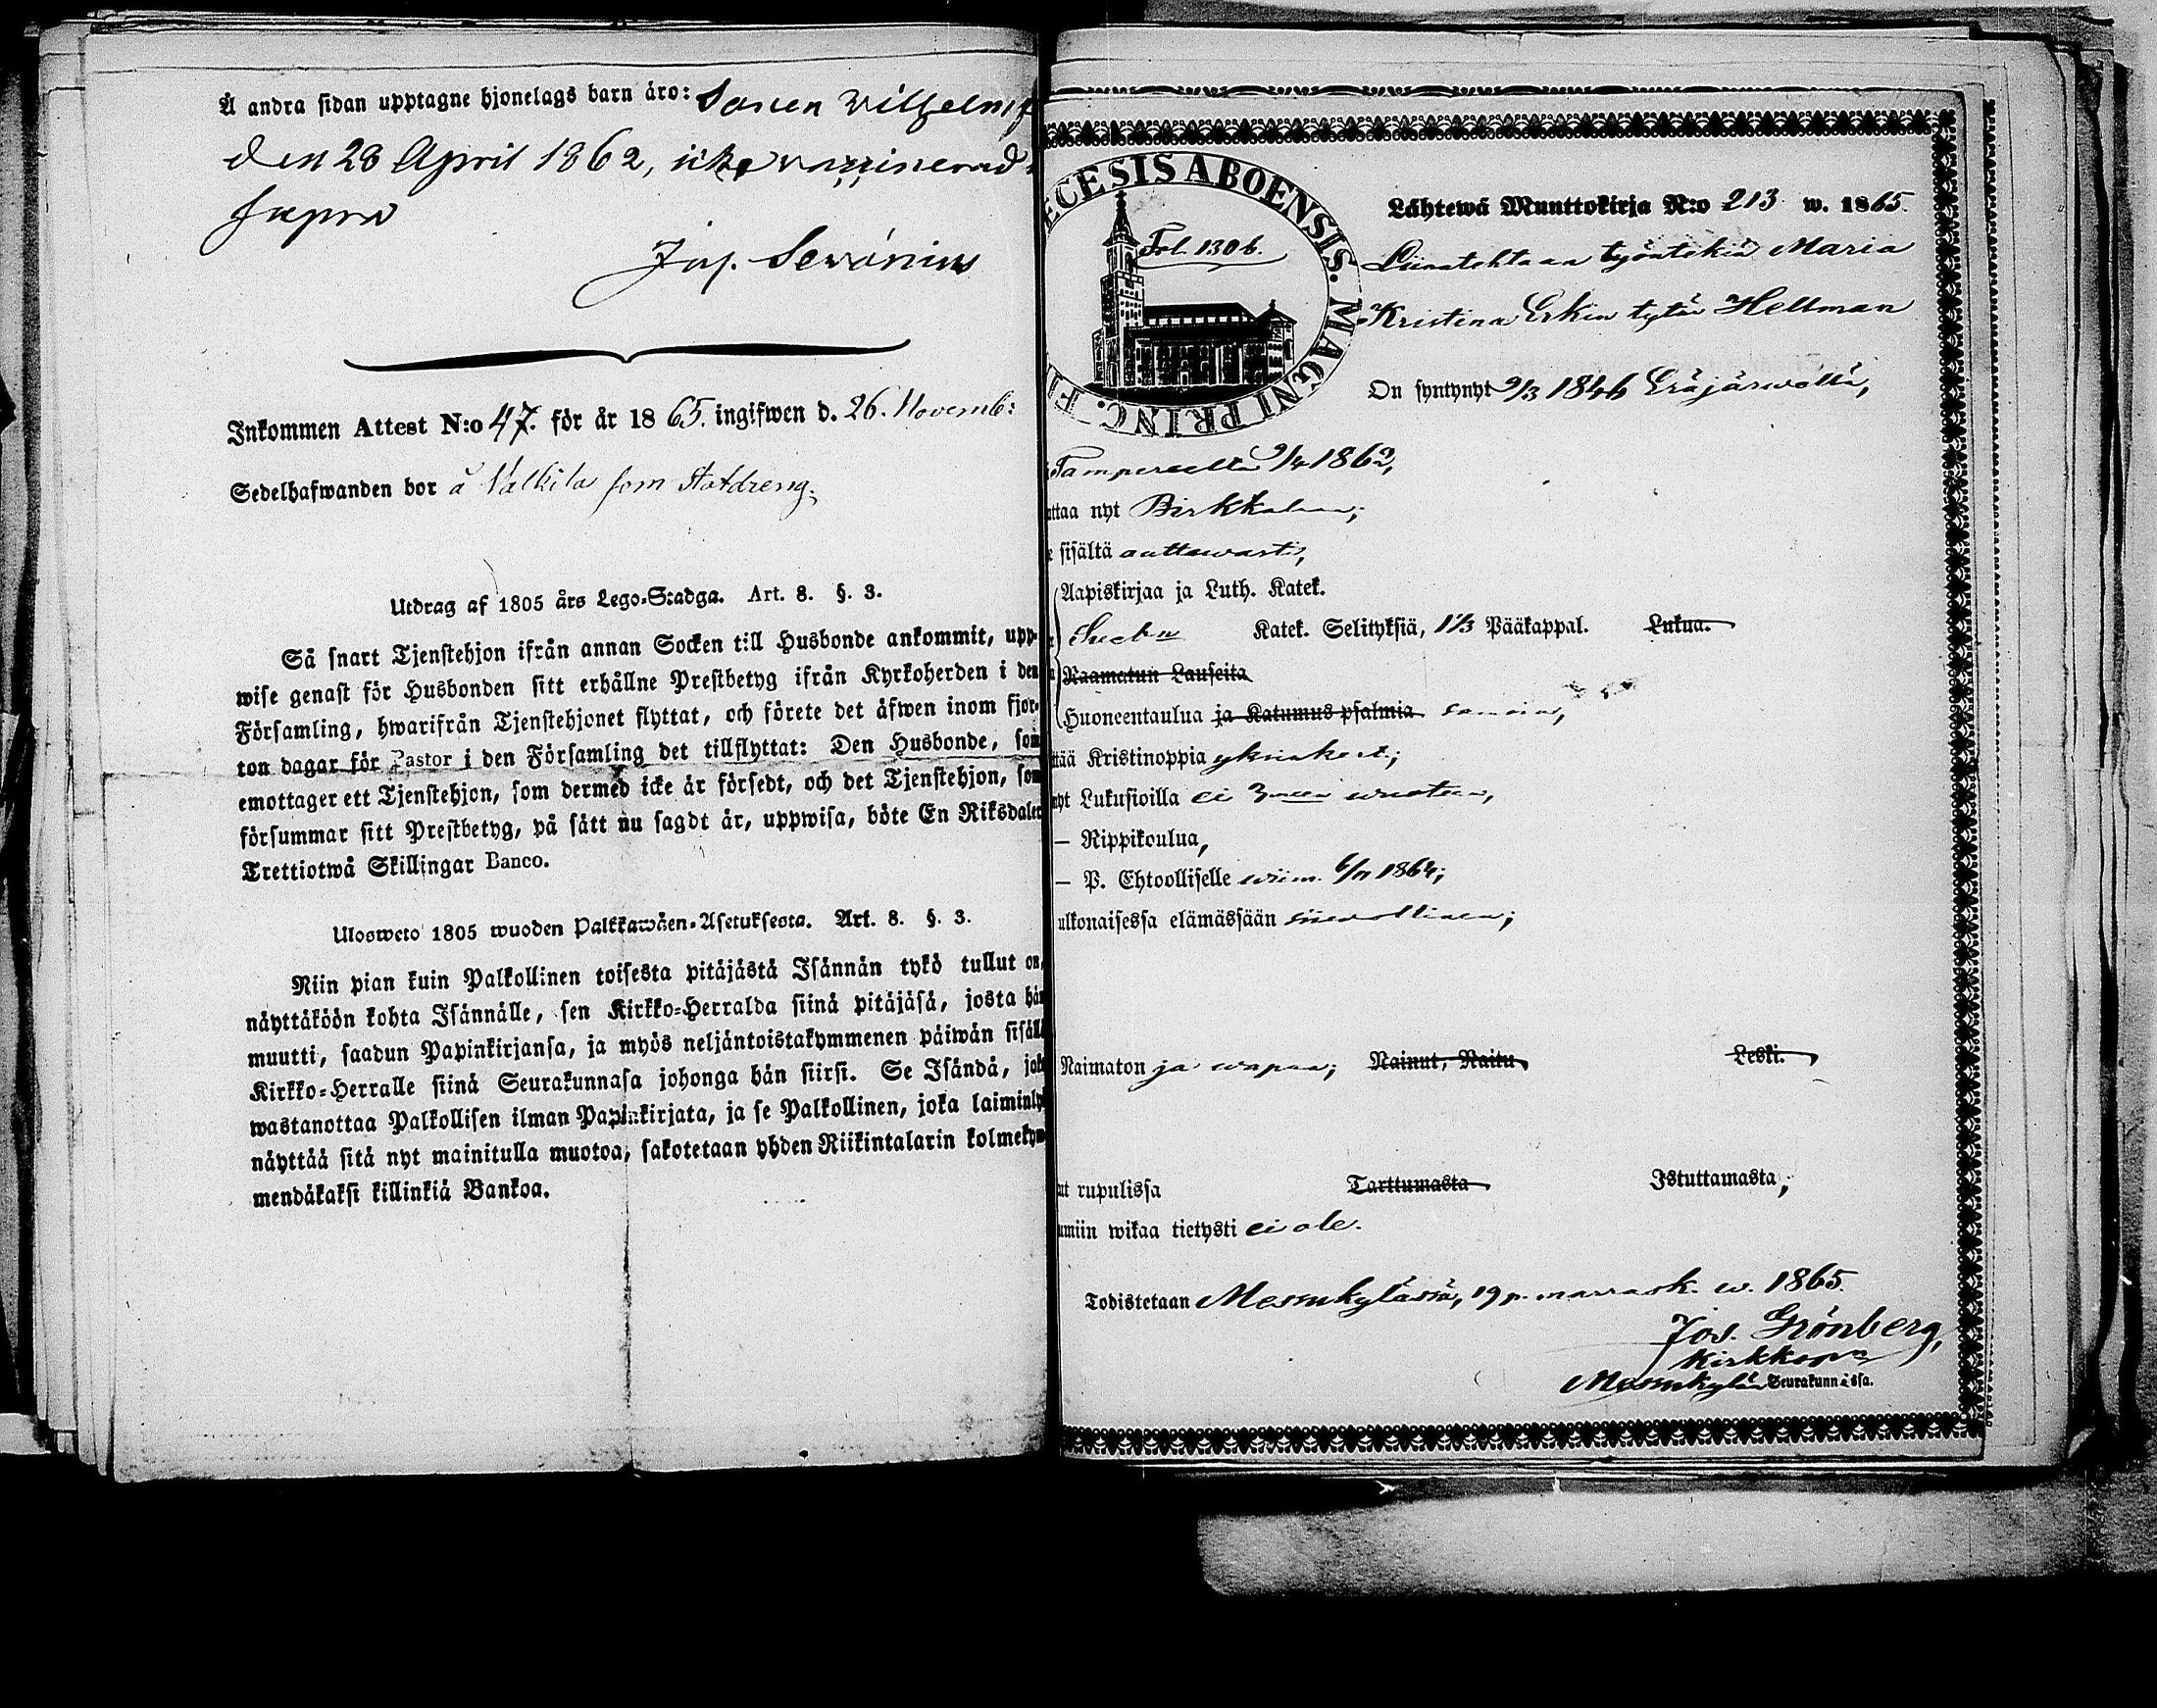 Å andra sidan upptagne hjonelags barn äro: Sonen Vilhelm f
den 28 April 1862, icke vaccinerad.
supra
Jos. Serónius
Inkommen Attest N:o 47. för år 1865. ingifwen d. 26. Novemb:
Sedelhafwanden bor å Valkila som Statdreng.
Utdrag af 1805 års Lego-Stadga. Art. 8. §. 3.
Så snart Tjenstehjon ifrån annan Socken till Husbonde ankommit, upp-
wise genast för Husbonden sitt erhållne Prestbetyg ifrån Kyrkoherden i den
Församling, hwarifrån Tjenstehjonet flyttat, och förete det äfwen inom fjor-
ton dagar för Pastor i den Församling det tillflyttat: Den Husbonde, som
emottager ett Tjenstehjon, som dermed icke är försedt, och det Tjenstehjon, som
försummar sitt Prestbetyg, på sätt nu sagdt är, uppwisa, böte En Riksdaler
Trettiotwå Skillingar Banco.
Ulosweto 1805 wuoden Palkkawäen-Asetuksesta. Art. 8. §. 3.
Niin pian kuin Palkollinen toisesta pitäjästä Isännän tykö tullut on,
näyttäköön kohta Isännälle, sen Kirkko-Herralda siinä pitäjäsä, josta hän
muutti, saadun Papinkirjansa, ja myös neljäntoistakymmenen päiwän sisällä
Kirkko-Herralle siinä Seurakunnasa johonga hän siirsi. Se Isändä, joka
wastanottaa Palkollisen ilman Papinkirjata, ja se Palkollinen, joka laiminly
näyttää sitä nyt mainitulla muotoa, sakotetaan yhden Riikintalarin kolmekym
mendäkaksi killinkiä Bankoa.
ECESIS ABOENSIS. MAGNI PRINC. F
Fol. 1306.
Lähtewä Muuttokirja N:o 213 w. 1865.
Liinatehtaan työntekiä Maria
Kristina Erkin tytär Hellman
On syntynyt 9/3 1846 Eräjärwellä,
Tampereelta 9/4 1862,
uttaa nyt Birkkalaan;
sisältä auttawasti,
Aapiskirjaa ja Luth. Katek.
Katek. Selityksiä, 1 1/3 Pääkappal. Lukua.
Raamatun Lauseita
Huoneentaulua ja Katumus psalmia samoin,
ttää Kristinoppia yksinkert.;
nyt Lukusioilla ei 3:neen wuoteen,
— Rippikoulua,
— P. Ehtoolliselle wiim. 6/11 1864;
ulkonaisessa elämässään siiwollinen;
Naimaton ja wapaa; Nainut, Naitu Leski.
ut rupulissa Tarttumasta Istuttamasta,
umiin wikaa tietysti ei ole.
Todistetaan Messukylässä, 19 p. marrask. w. 1865.
Jos. Grönberg,
Kirkkoh:ra
Messukylän Seurakunnassa.